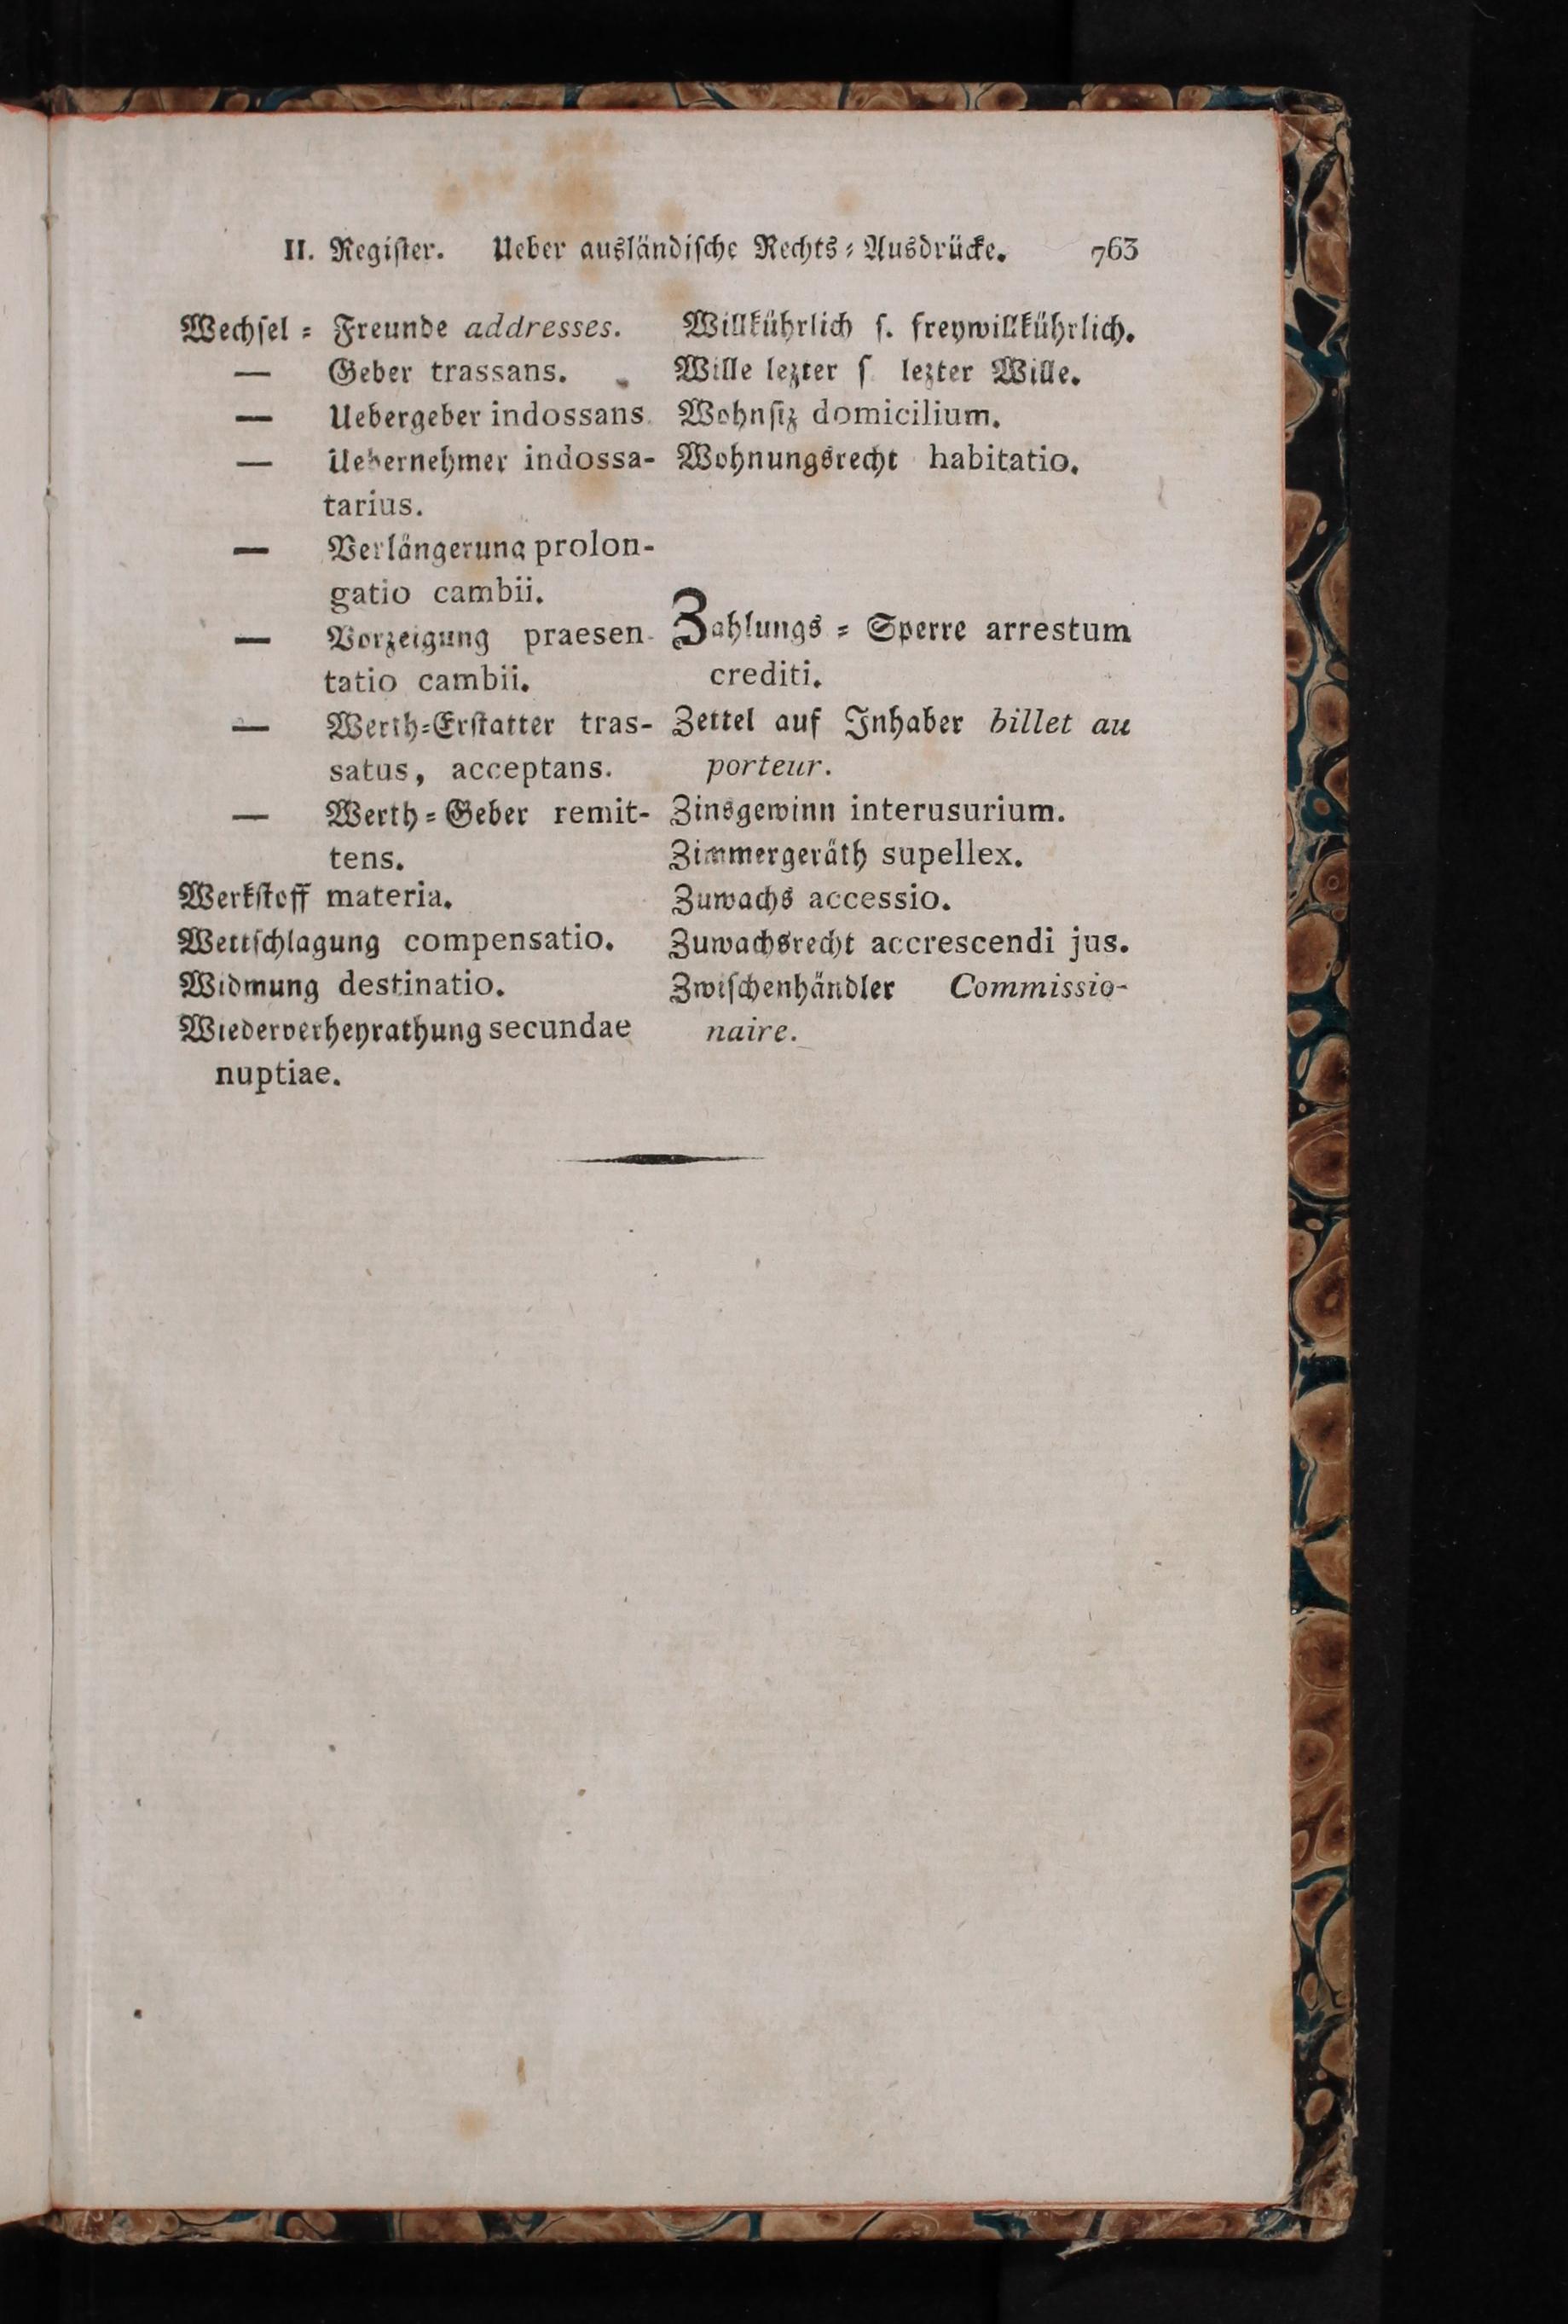 II. Register. Ueber ausländische Rechts-Ausdrücke. 763
Wechsel-Freunde addresses.
— Geber trassans.
— Uebergeber indossans.
— Uebernehmer indossa-
tarius.
— Verlängerung prolon-
gatio cambii.
— Vorzeigung praesen-
tatio cambii.
— Werth-Erstatter tras-
satus, acceptans.
— Werth-Geber remit-
tens.
Werkstoff materia.
Wettschlagung compensatio.
Widmung destinatio.
Wiederverheyrathung secundae
nuptiae.
Willkührlich s. freywillkührlich.
Wille lezter s lezter Wille.
Wohnsiz domicilium.
Wohnungsrecht habitatio.
Zahlungs-Sperre arrestum
crediti.
Zettel auf Inhaber billet au
porteur.
Zinsgewinn interusurium.
Zimmergeräth supellex.
Zuwachs accessio.
Zuwachsrecht accrescendi jus.
Zwischenhändler Commissio-
naire.